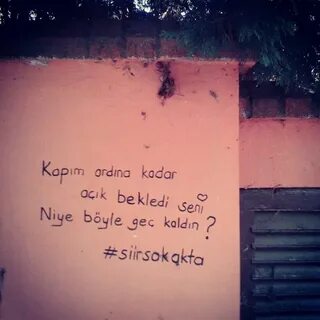 Kapım ardına kadar
açık bekledi seni
Niye böyle geç kaldın?
#siirsokakta